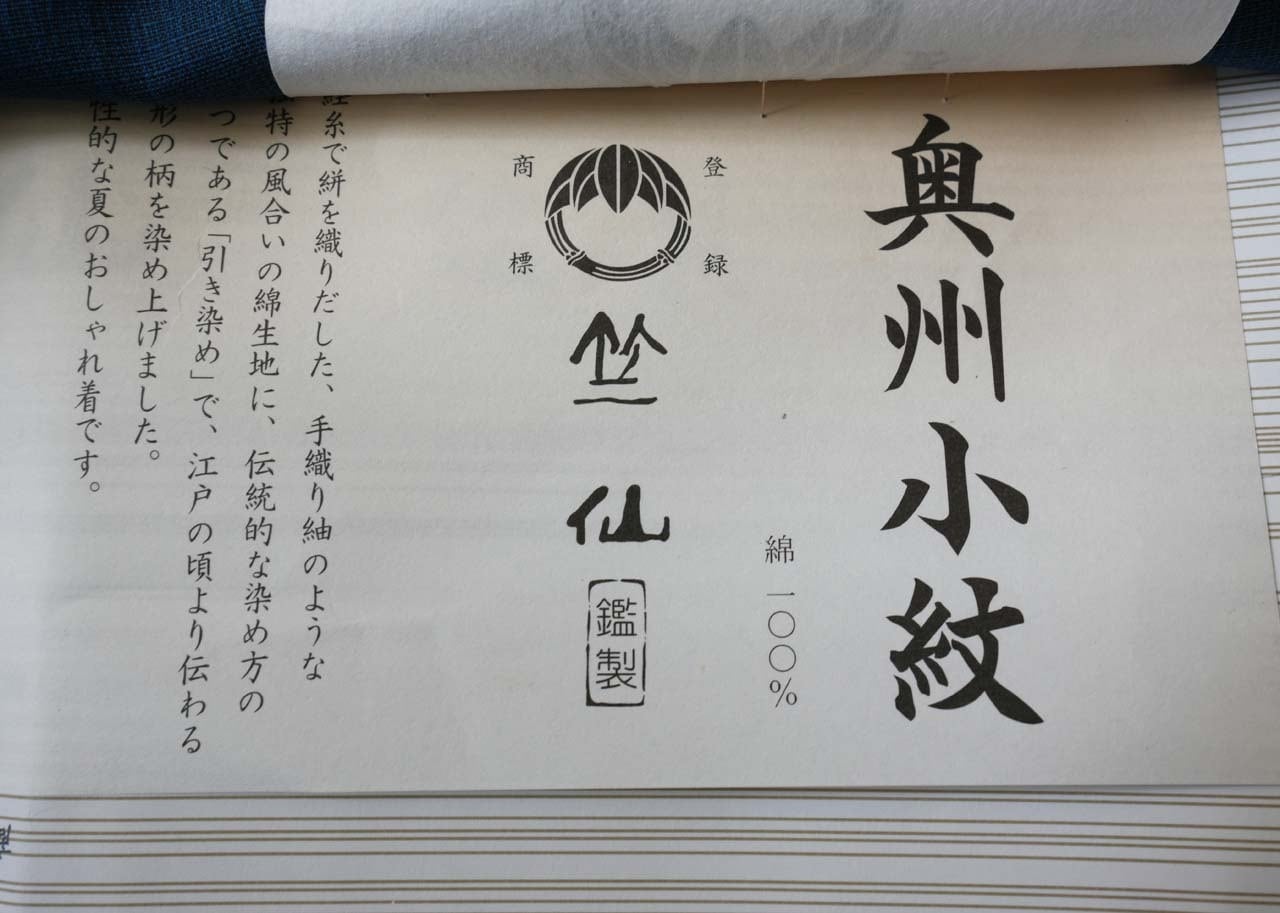 奥州小紋
綿一〇〇%
登録
商標
竺仙
鑑製
経糸で絣を織りだした、手織り紬のような
特の風合いの綿生地に、伝統的な染め方の
つである「引き染め」で、江戸の頃より伝わる
形の柄を染め上げました。
性的な夏のおしゃれ着です。